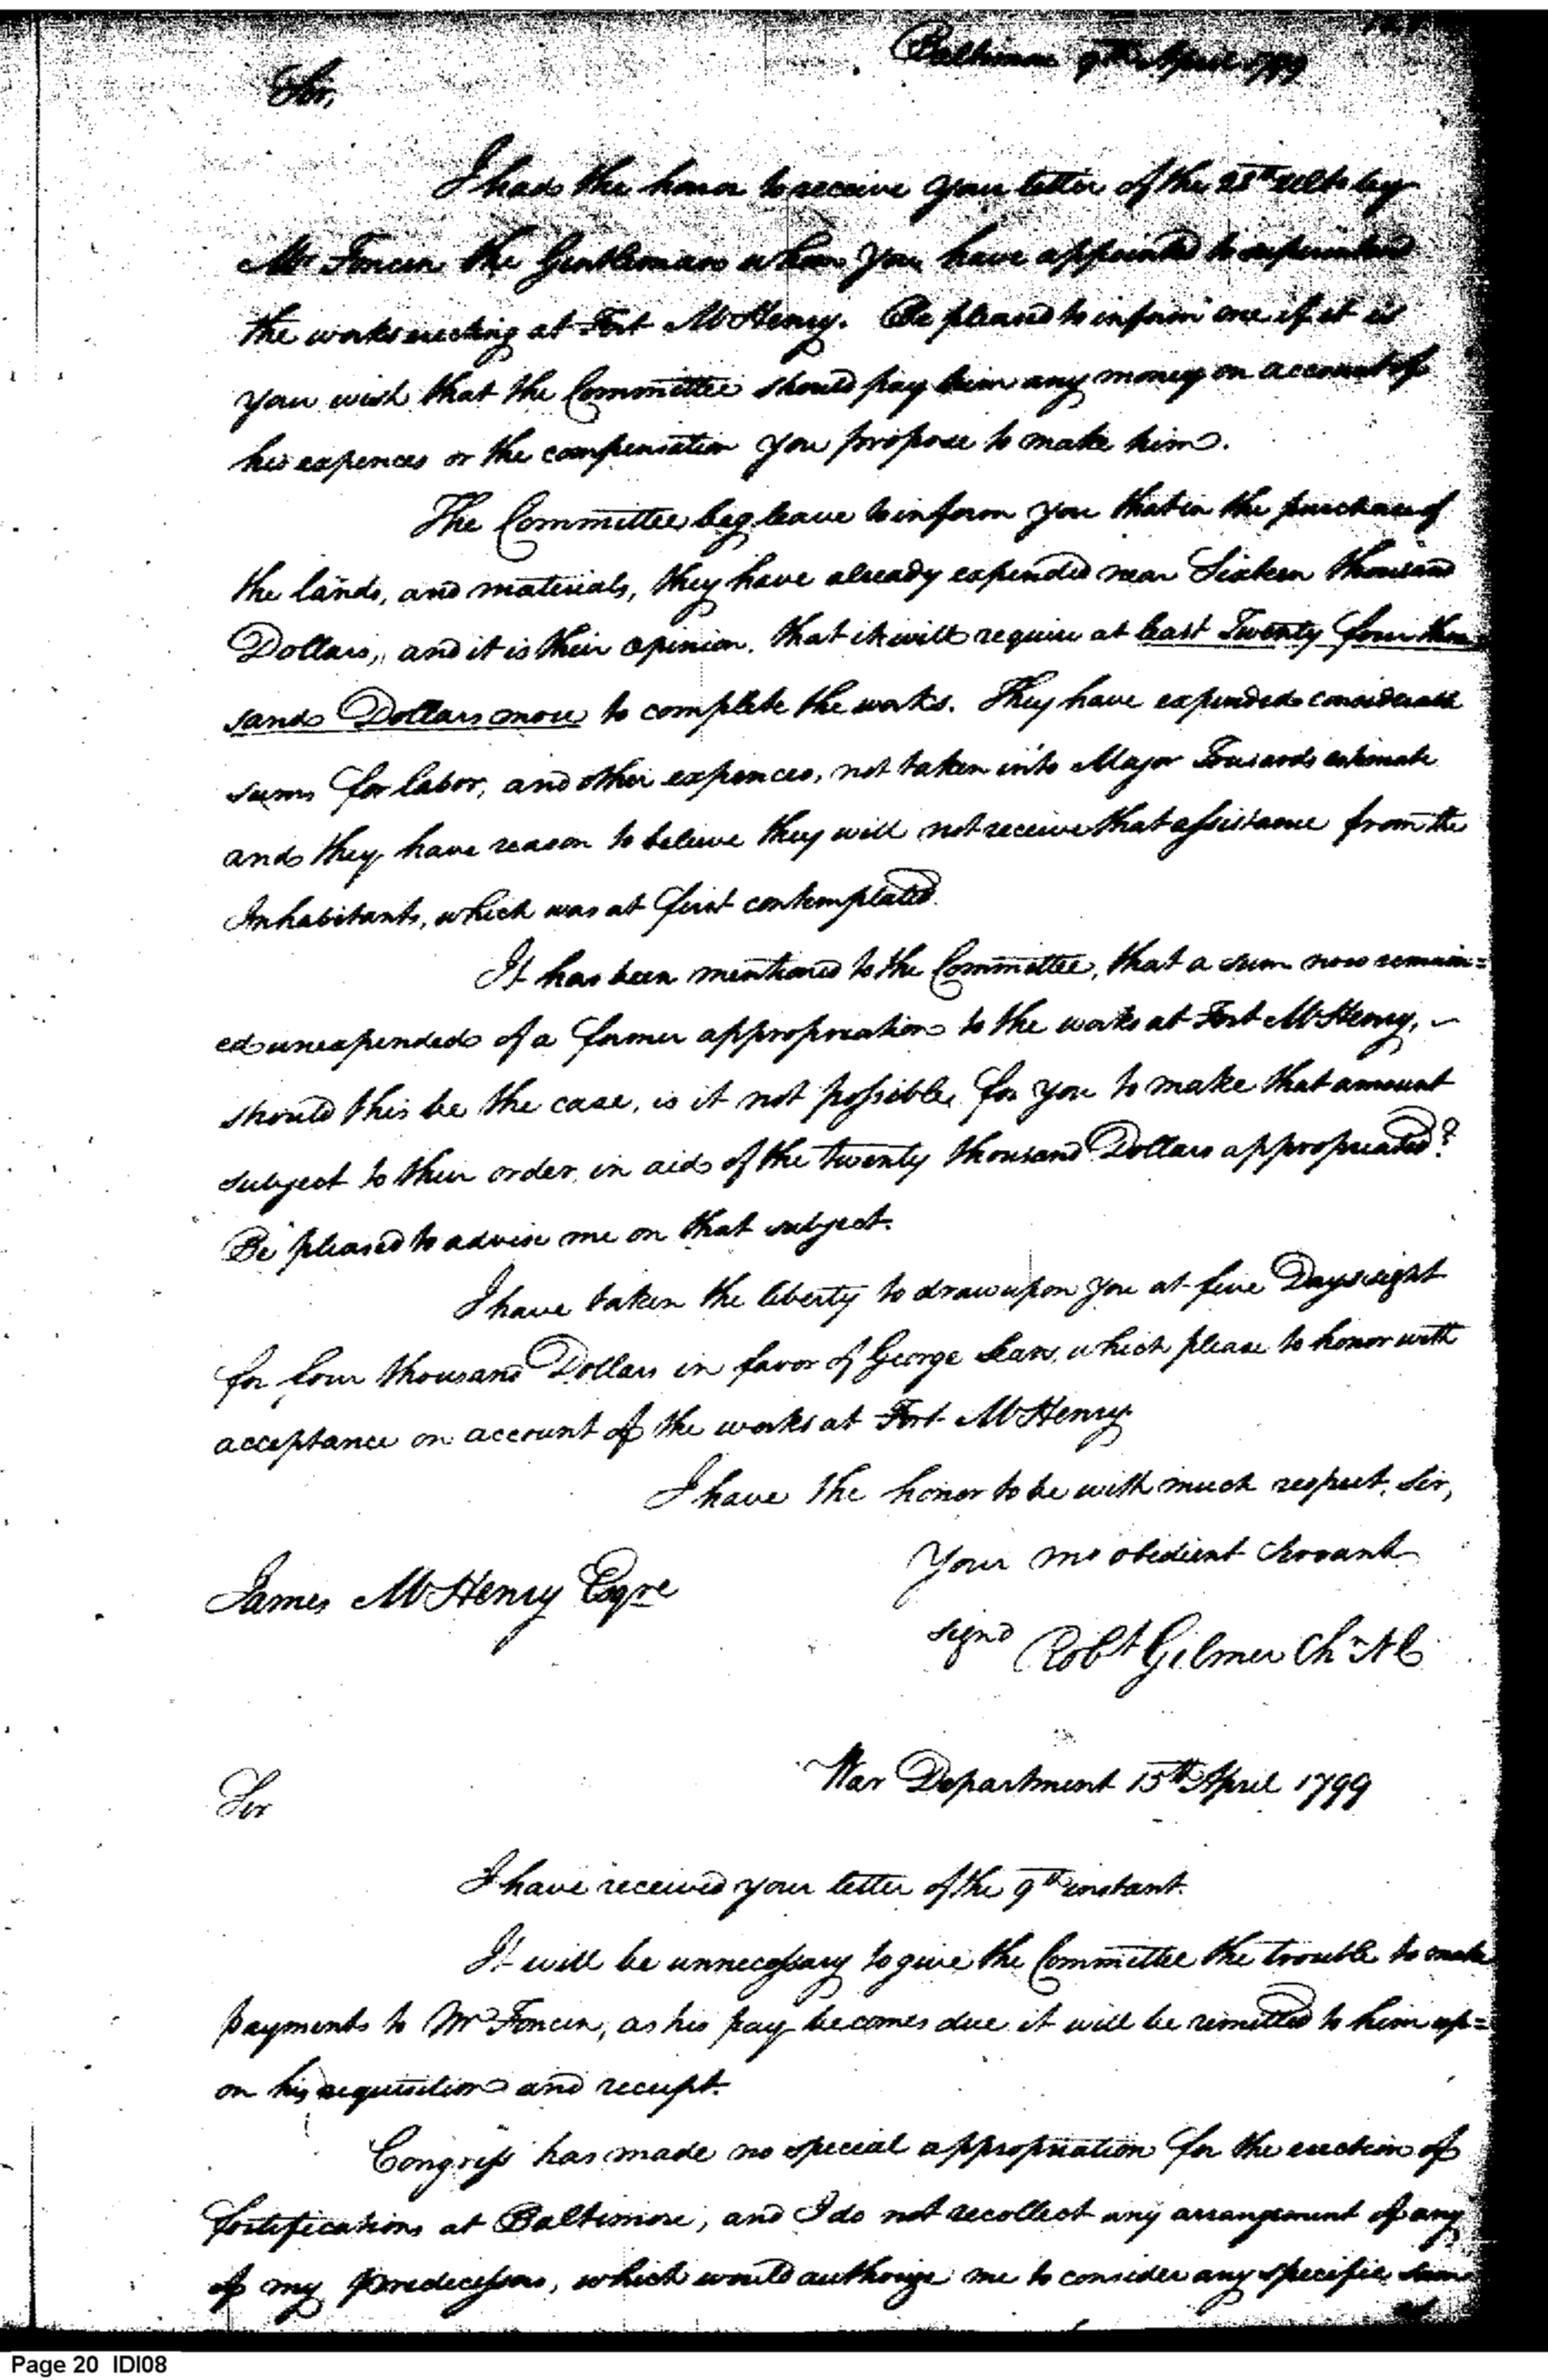 Baltimore 9th April 1799
Sir,
I had the honor to receive your letter of the 28th ulto by
Mr Foncin the Gentleman whom you have appointed to superintend
the works erecting at Fort McHenry. Be pleased to inform me if it is
your wish that the Committee should pay him any money on account of
his expences or the compensation you propose to make him.
The Committee beg leave to inform you that in the purchase of
the lands, and materials, they have already expended near Sixteen thousand
Dollars, and it is their opinion, that it will require at least Twenty four thou
sand Dollars more to complete the works. They have expended considerable
sums for labor, and other expences, not taken into Major Tousards estimate
and they have reason to believe they will not receive that assistance from the
Inhabitants, which was at first contemplated.
It has been mentioned to the Committee, that a sum now remain=
ed unexpended of a former appropriation to the works at Fort McHenry,
should this be the case, is it not possible for you to make that amount
subject to their order, in aid of the twenty thousand Dollars appropriated?
Be pleased to advise me on that subject.
I have taken the liberty to draw upon you at five Days sight
for four thousand Dollars in favor of George Sears, which please to honor with
acceptance on account of the works at Fort McHenry.
I have the honor to be with much respect, Sir,
Your mo obedient Servant
James McHenry Esqre
signd Robt Gilmor Chn N C
War Department 15th April 1799
Sir
I have received your letter of the 9th instant.
It will be unnecessary to give the Committee the trouble to make
payments to Mr Foncin, as his pay becomes due it will be remitted to him up=
on his requisition and receipt.
Congress has made no special appropriation for the erection of
fortifications at Baltimore, and I do not recollect any arrangement of any
of my predecessors, which would authorize me to consider any specific sum
Page 20 IDI08